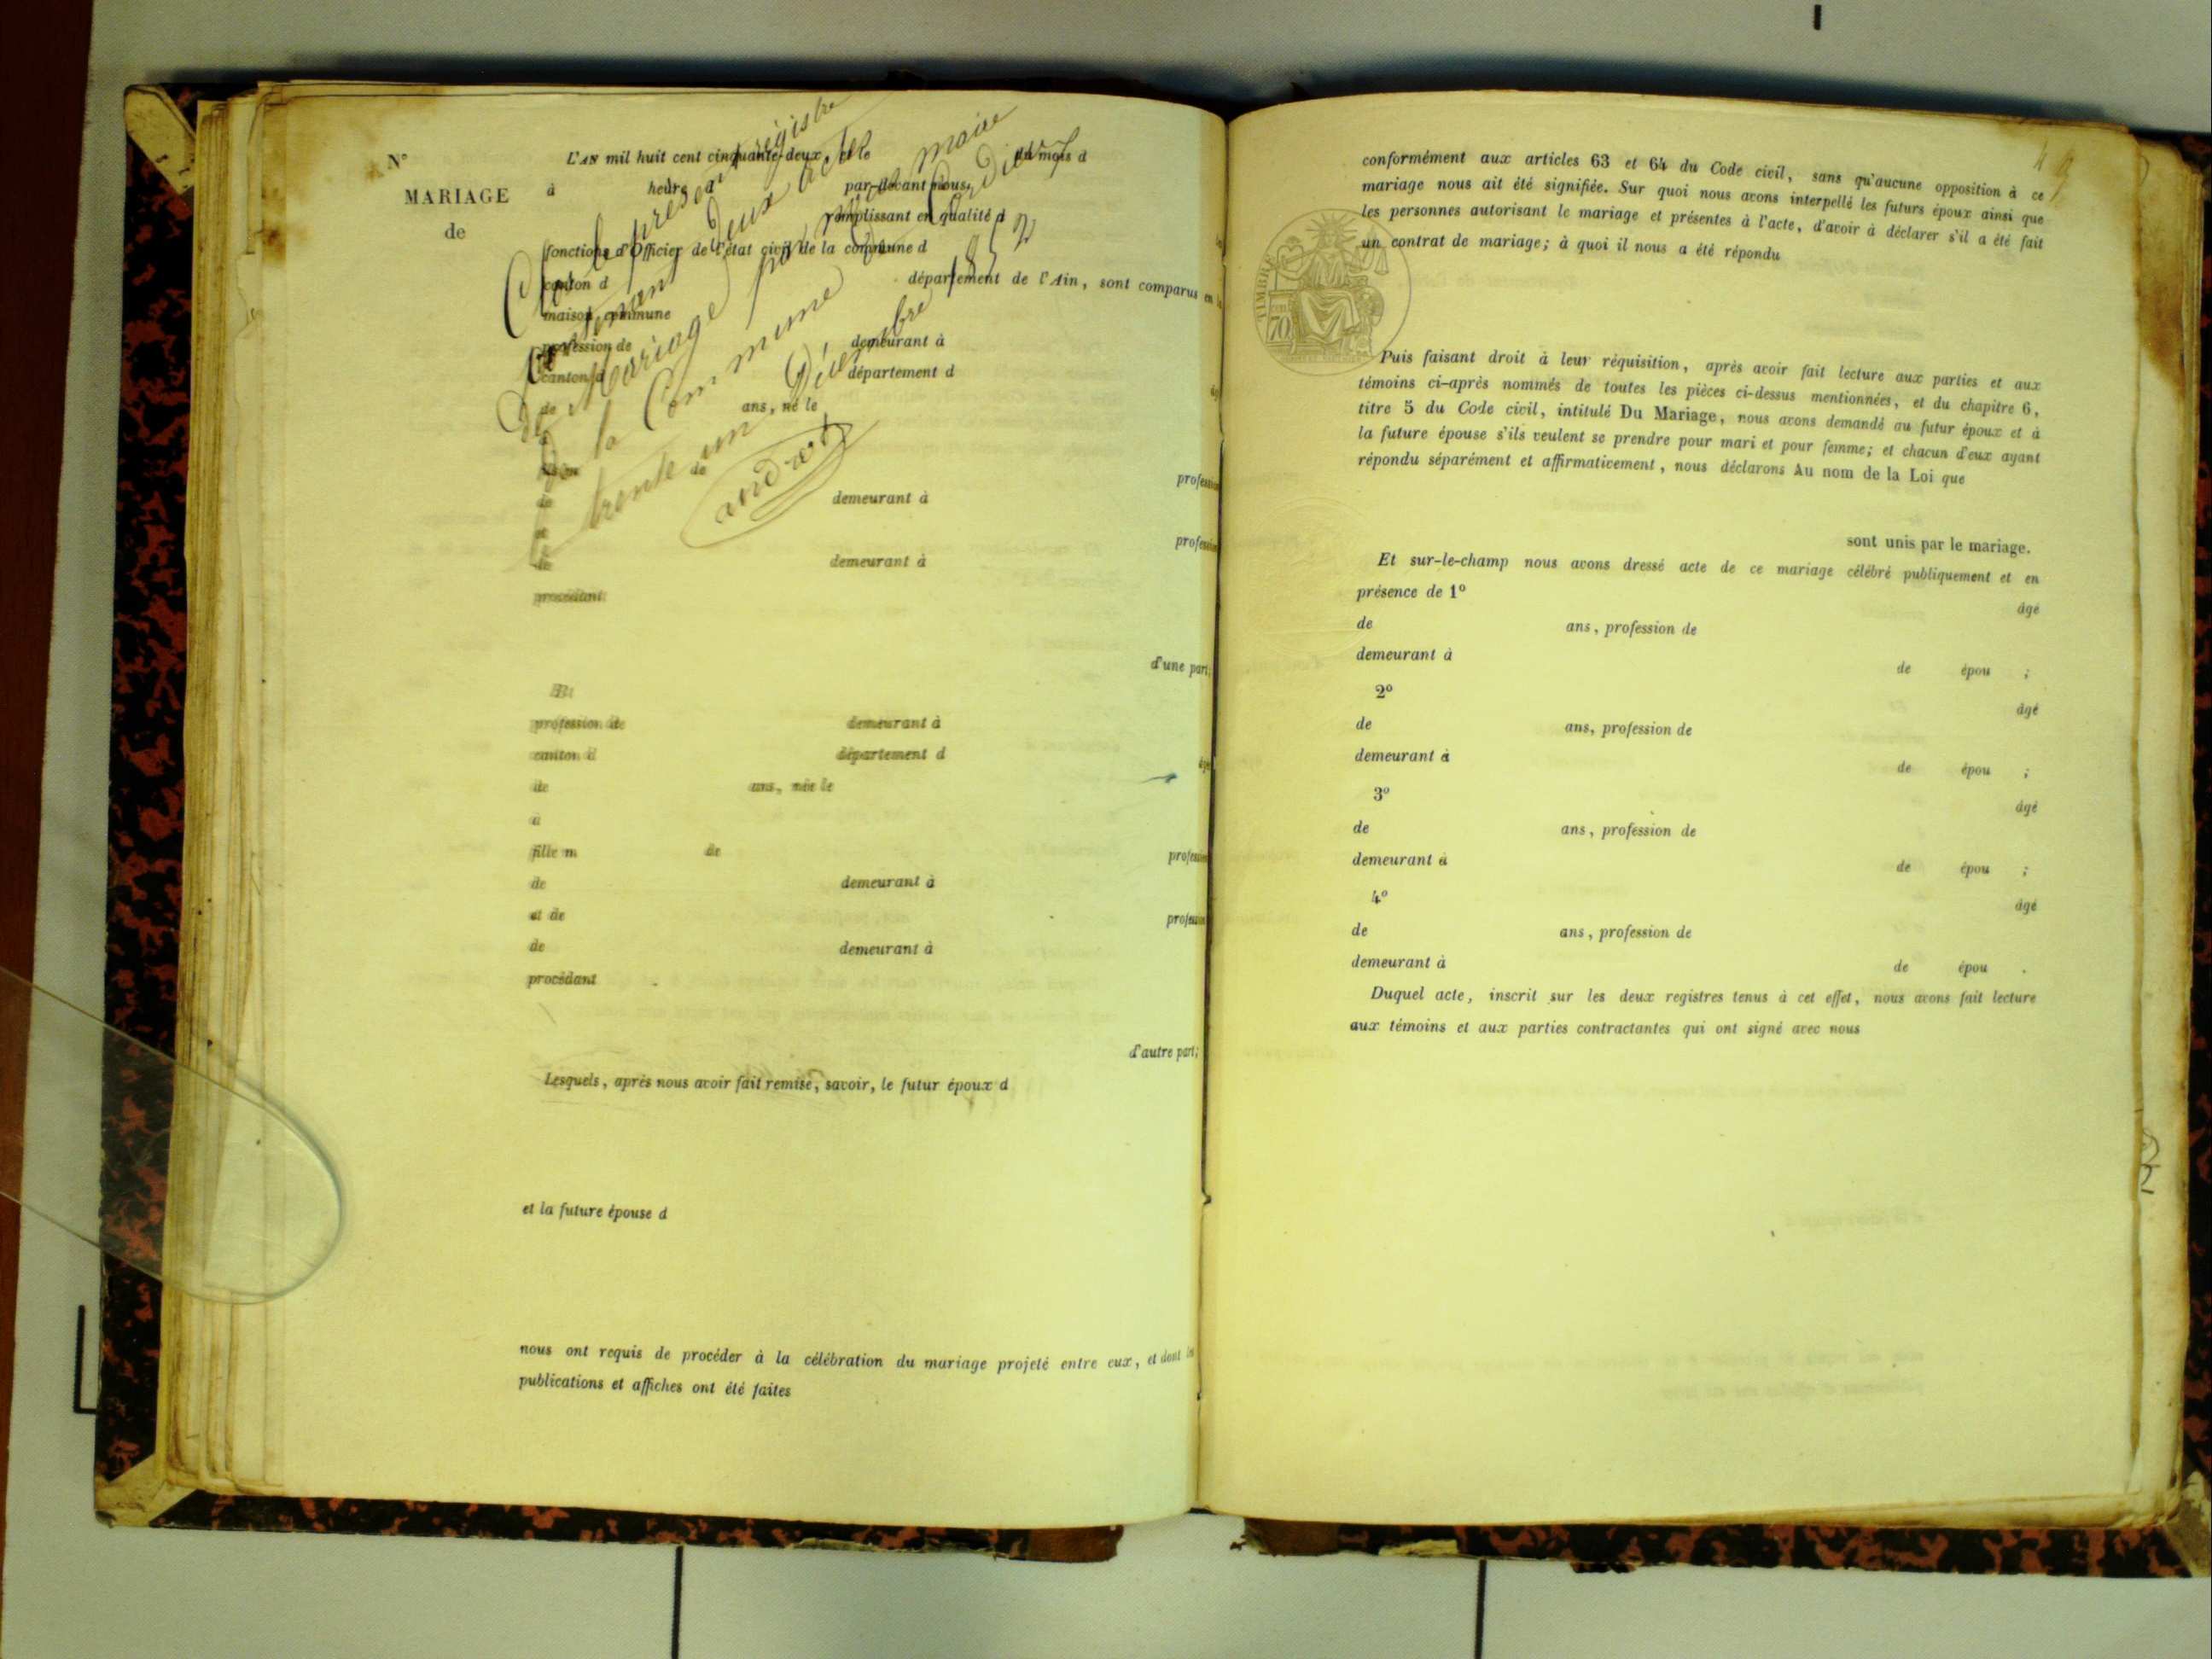 N°
MARIAGE
de
L'AN mil huit cent cinquante-deux, et le du mois d
à heure d par-devant nous,
remplissant en qualité d
fonctions d'Officier de l'état civil de la commune d
canton d département de l'Ain, sont comparus en la
maison commune
profession de demeurant à
canton d département d
de ans, né le
à
de demeurant à profession
et
de demeurant à profession
procédant
d'une part;
Et
profession de demeurant à
canton d département d
de ans, née le âgé
à
fille m de profession
de demeurant à
et de profession
de demeurant à
procédant
d'autre part;
Lesquels, après nous avoir fait remise, savoir, le futur époux d
et la future épouse d
nous ont requis de procéder à la célébration du mariage projeté entre eux, et dont les
publications et affiches ont été faites
Clos le présent régistre
deux actes
De Mariage par maire
De la Commune
trente un Décembre 1852
androt
49
conformément aux articles 63 et 64 du Code civil, sans qu'aucune opposition à ce
mariage nous ait été signifiée. Sur quoi nous avons interpellé les futurs époux ainsi que
les personnes autorisant le mariage et présentes à l'acte, d'avoir à déclarer s'il a été fait
un contrat de mariage; à quoi il nous a été répondu
TIMBRE
70
Puis faisant droit à leur réquisition, après avoir fait lecture aux parties et aux
témoins ci-après nommés de toutes les pièces ci-dessus mentionnées, et du chapitre 6,
titre 5 du Code civil, intitulé Du Mariage, nous avons demandé au futur époux et à
la future épouse s'ils veulent se prendre pour mari et pour femme; et chacun d'eux ayant
répondu séparément et affirmativement, nous déclarons Au nom de la Loi que
sont unis par le mariage.
Et sur-le-champ nous avons dressé acte de ce mariage célébré publiquement et en
présence de 1° âgé
de ans, profession de
demeurant à de épou ;
2° âgé
de ans, profession de
demeurant à de épou ;
3° âgé
de ans, profession de
demeurant à de épou ;
4° âgé
de ans, profession de
demeurant à de épou .
Duquel acte, inscrit sur les deux registres tenus à cet effet, nous avons fait lecture
aux témoins et aux parties contractantes qui ont signé avec nous